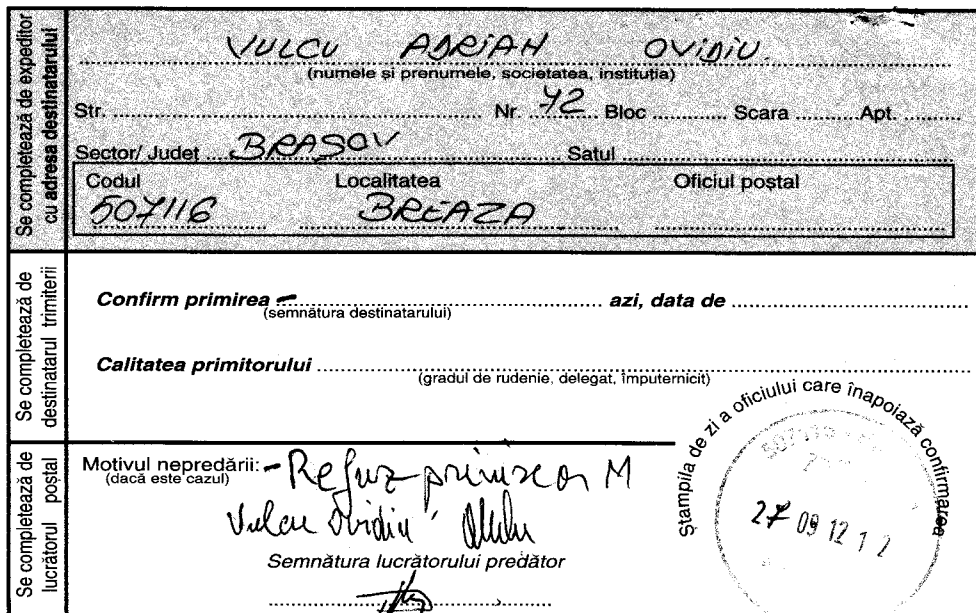 Se completează de expeditor
cu adresa destinatarului
VULCU ADRIAN OVIDIU
(numele și prenumele, societatea, instituția)
Str. .......... Nr. 42 Bloc .......... Scara .......... Apt. ..........
Sector/ Județ BRAȘOV Satul ..........
Codul Localitatea Oficiul poștal
507116 BREAZA
Se completează de
destinatarul trimiterii
Confirm primirea .......... azi, data de ..........
(semnătura destinatarului)
Calitatea primitorului ..........
(gradul de rudenie, delegat, împuternicit)
Se completează de
lucrătorul poștal
Motivul nepredării: - Refuz
(dacă este cazul)
Vulcu Ovidiu
Semnătura lucrătorului predător
Ștampila de zi a oficiului care înapoiază confirmarea
27 09 12 12